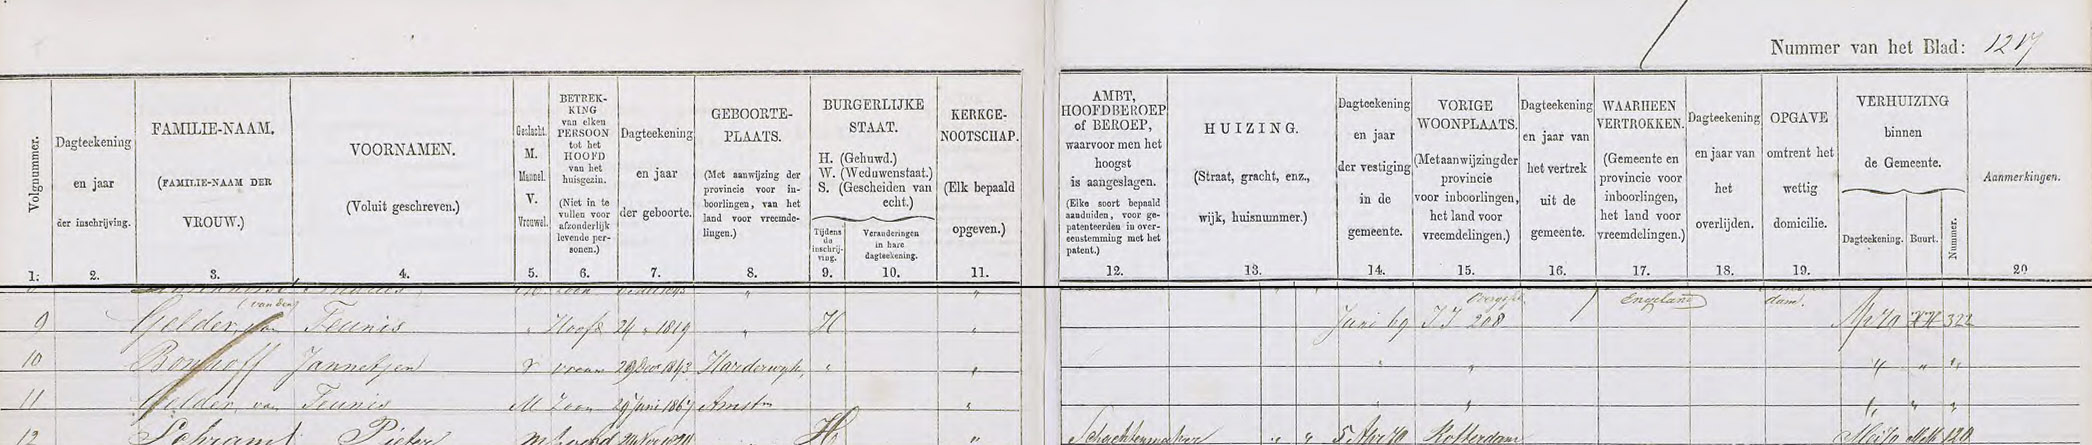 Nummer van het Blad: 1217
Volgnummer.
Dagteekening
en jaar
der inschrijving.
FAMILIE-NAAM.
(FAMILIE-NAAM DER
VROUW.)
VOORNAMEN.
(Voluit geschreven.)
Geslacht.
M.
Mannel.
V.
Vrouwel.
BETREK-
KING
van elken
PERSOON
tot het
HOOFD
van het
huisgezin.
(Niet in te
vullen voor
afzonderlijk
levende per-
sonen.)
Dagteekening
en jaar
der geboorte.
GEBOORTE-
PLAATS.
(Met aanwijzing der
provincie voor in-
boorlingen, van het
land voor vreemde-
lingen.)
BURGERLIJKE
STAAT.
H. (Gehuwd.)
W. (Weduwenstaat.)
S. (Gescheiden van
echt.)
Tijdens
de
inschrij-
ving.
Veranderingen
in hare
dagteekening.
KERKGE-
NOOTSCHAP.
(Elk bepaald
opgeven.)
AMBT,
HOOFDBEROEP
of BEROEP,
waarvoor men het
hoogst
is aangeslagen.
(Elke soort bepaald
aanduiden, voor ge-
patenteerden in over-
eenstemming met het
patent.)
HUIZING.
(Straat, gracht, enz.,
wijk, huisnummer.)
Dagteekening
en jaar
der vestiging
in de
gemeente.
VORIGE
WOONPLAATS.
(Met aanwijzing der
provincie
voor inboorlingen,
het land voor
vreemdelingen.)
Dagteekening
en jaar van
het vertrek
uit de
gemeente.
WAARHEEN
VERTROKKEN.
(Gemeente en
provincie voor
inboorlingen,
het land voor
vreemdelingen.)
Dagteekening
en jaar van
het
overlijden.
OPGAVE
omtrent het
wettig
domicilie.
VERHUIZING
binnen
de Gemeente.
Dagteekening.
Buurt.
Nummer.
Aanmerkingen.
1. 2. 3. 4. 5. 6. 7. 8. 9. 10. 11. 12. 13. 14. 15. 16. 17. 18. 19. 20
(van den) Overgesch. Engeland dam.
9 Gelder, van Teunis " Hoofd 24 " 1819 " H " Juni 69 JJ 208 Ap 70 322
10 Bonhoff Jannetjen V vrouw 29 Dec 1843 Harderwijk " " " " " " "
11 Gelder, van Teunis M Zoon 29 Juni 1867 Amstm " " " " " "
12 Schram Pieter M hoofd H " Schachtenmaker " " 5 Apr 70 Rotterdam Mei 70 120